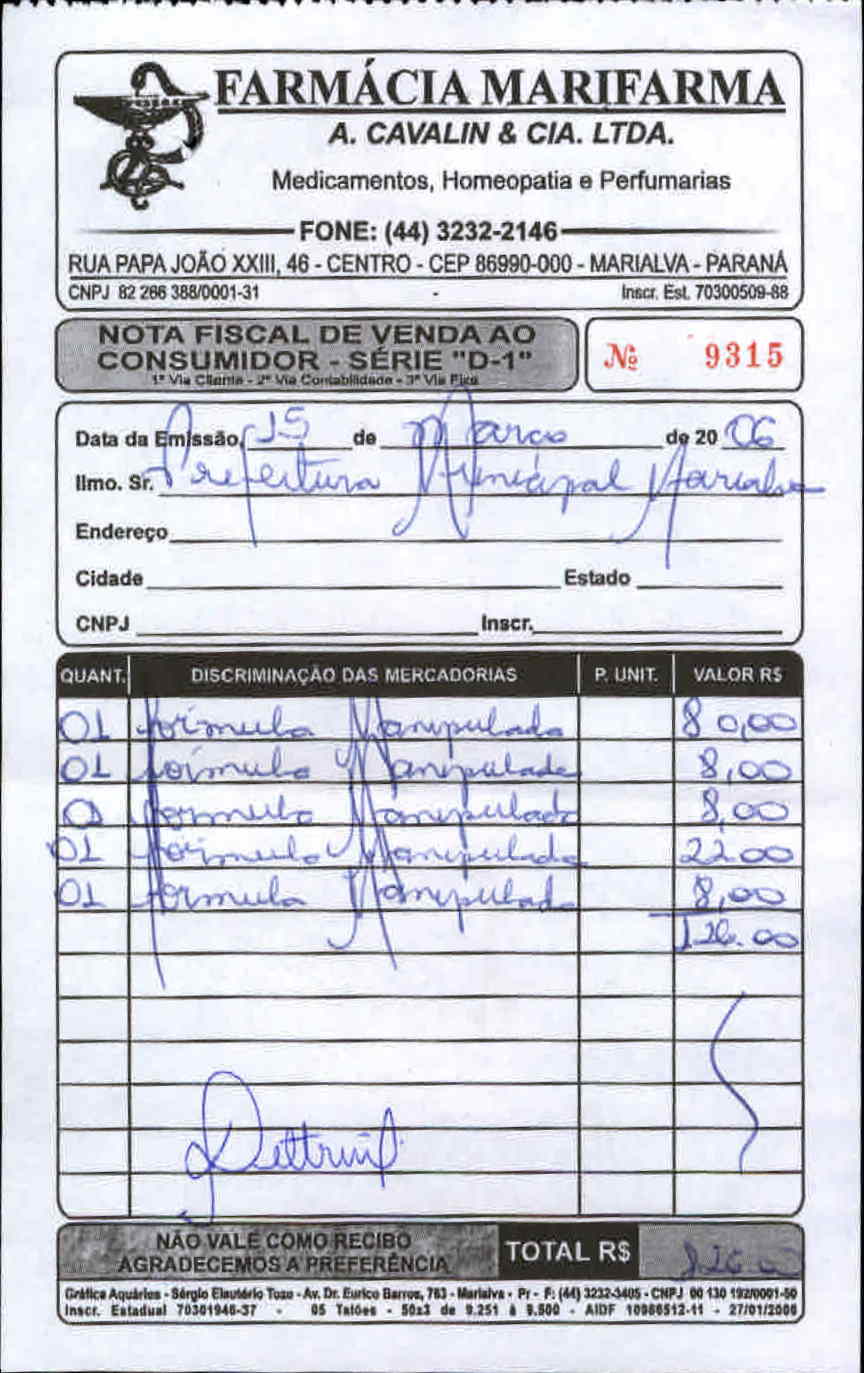 FARMÁCIA MARIFARMA
A. CAVALIN & CIA. LTDA.
Medicamentos, Homeopatia e Perfumarias
FONE: (44) 3232-2146
RUA PAPA JOÃO XXIII, 46 - CENTRO - CEP 86990-000 - MARIALVA - PARANÁ
CNPJ 82 266 388/0001-31 - Inscr. Est. 70300509-88
NOTA FISCAL DE VENDA AO
CONSUMIDOR - SÉRIE "D-1"
1ª Via Cliente - 2ª Via Contabilidade - 3ª Via Fixa
Nº 9315
Data da Emissão, 15 de Março de 20 06
Ilmo. Sr. Prefeitura Municipal Marialva
Endereço
Cidade Estado
CNPJ Inscr.
QUANT. DISCRIMINAÇÃO DAS MERCADORIAS P. UNIT. VALOR R$
01 fórmula Manipulada 80,00
01 fórmula Manipulada 8,00
01 formula Manipulada 8,00
01 fórmula Manipulada 22.00
01 formula Manipulada 8,00
126.00
NÃO VALE COMO RECIBO
AGRADECEMOS A PREFERÊNCIA
TOTAL R$ 126.00
Gráfica Aquários - Sérgio Eleutério Tozo - Av. Dr. Eurico Barros, 763 - Marialva - Pr - F: (44) 3232-3405 - CNPJ 00 130 192/0001-50
Inscr. Estadual 70301946-37 - 05 Talões - 50x3 de 9.251 à 9.500 - AIDF 10986512-11 - 27/01/2006